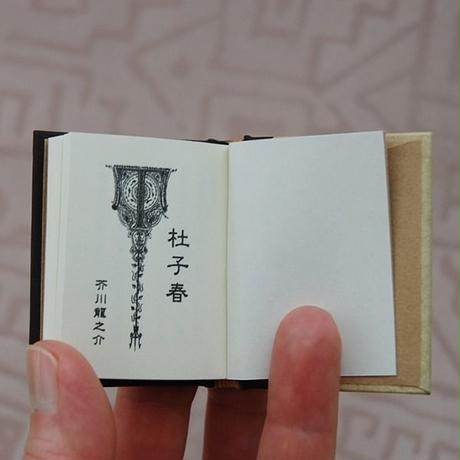 杜子春
芥川龍之介